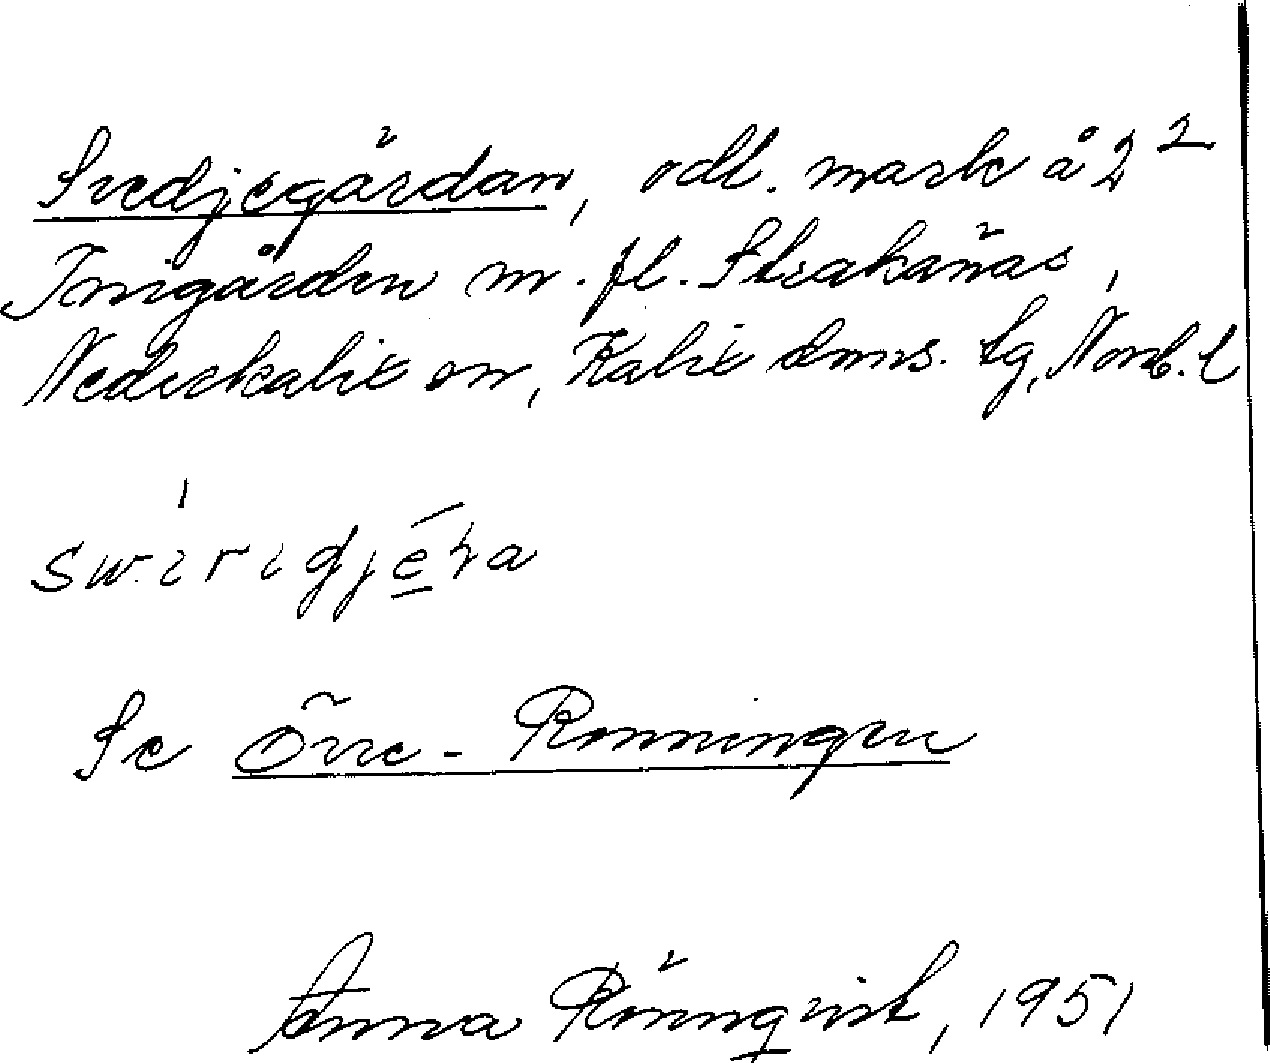 Svedjegärdan, odl. mark å 2²
Innigården m. fl. Strakanäs,
Nederkalix sn, Kalix doms. lg, Norrb. l
Se Övre-Rönningen
Anna Rönnqvist, 1951